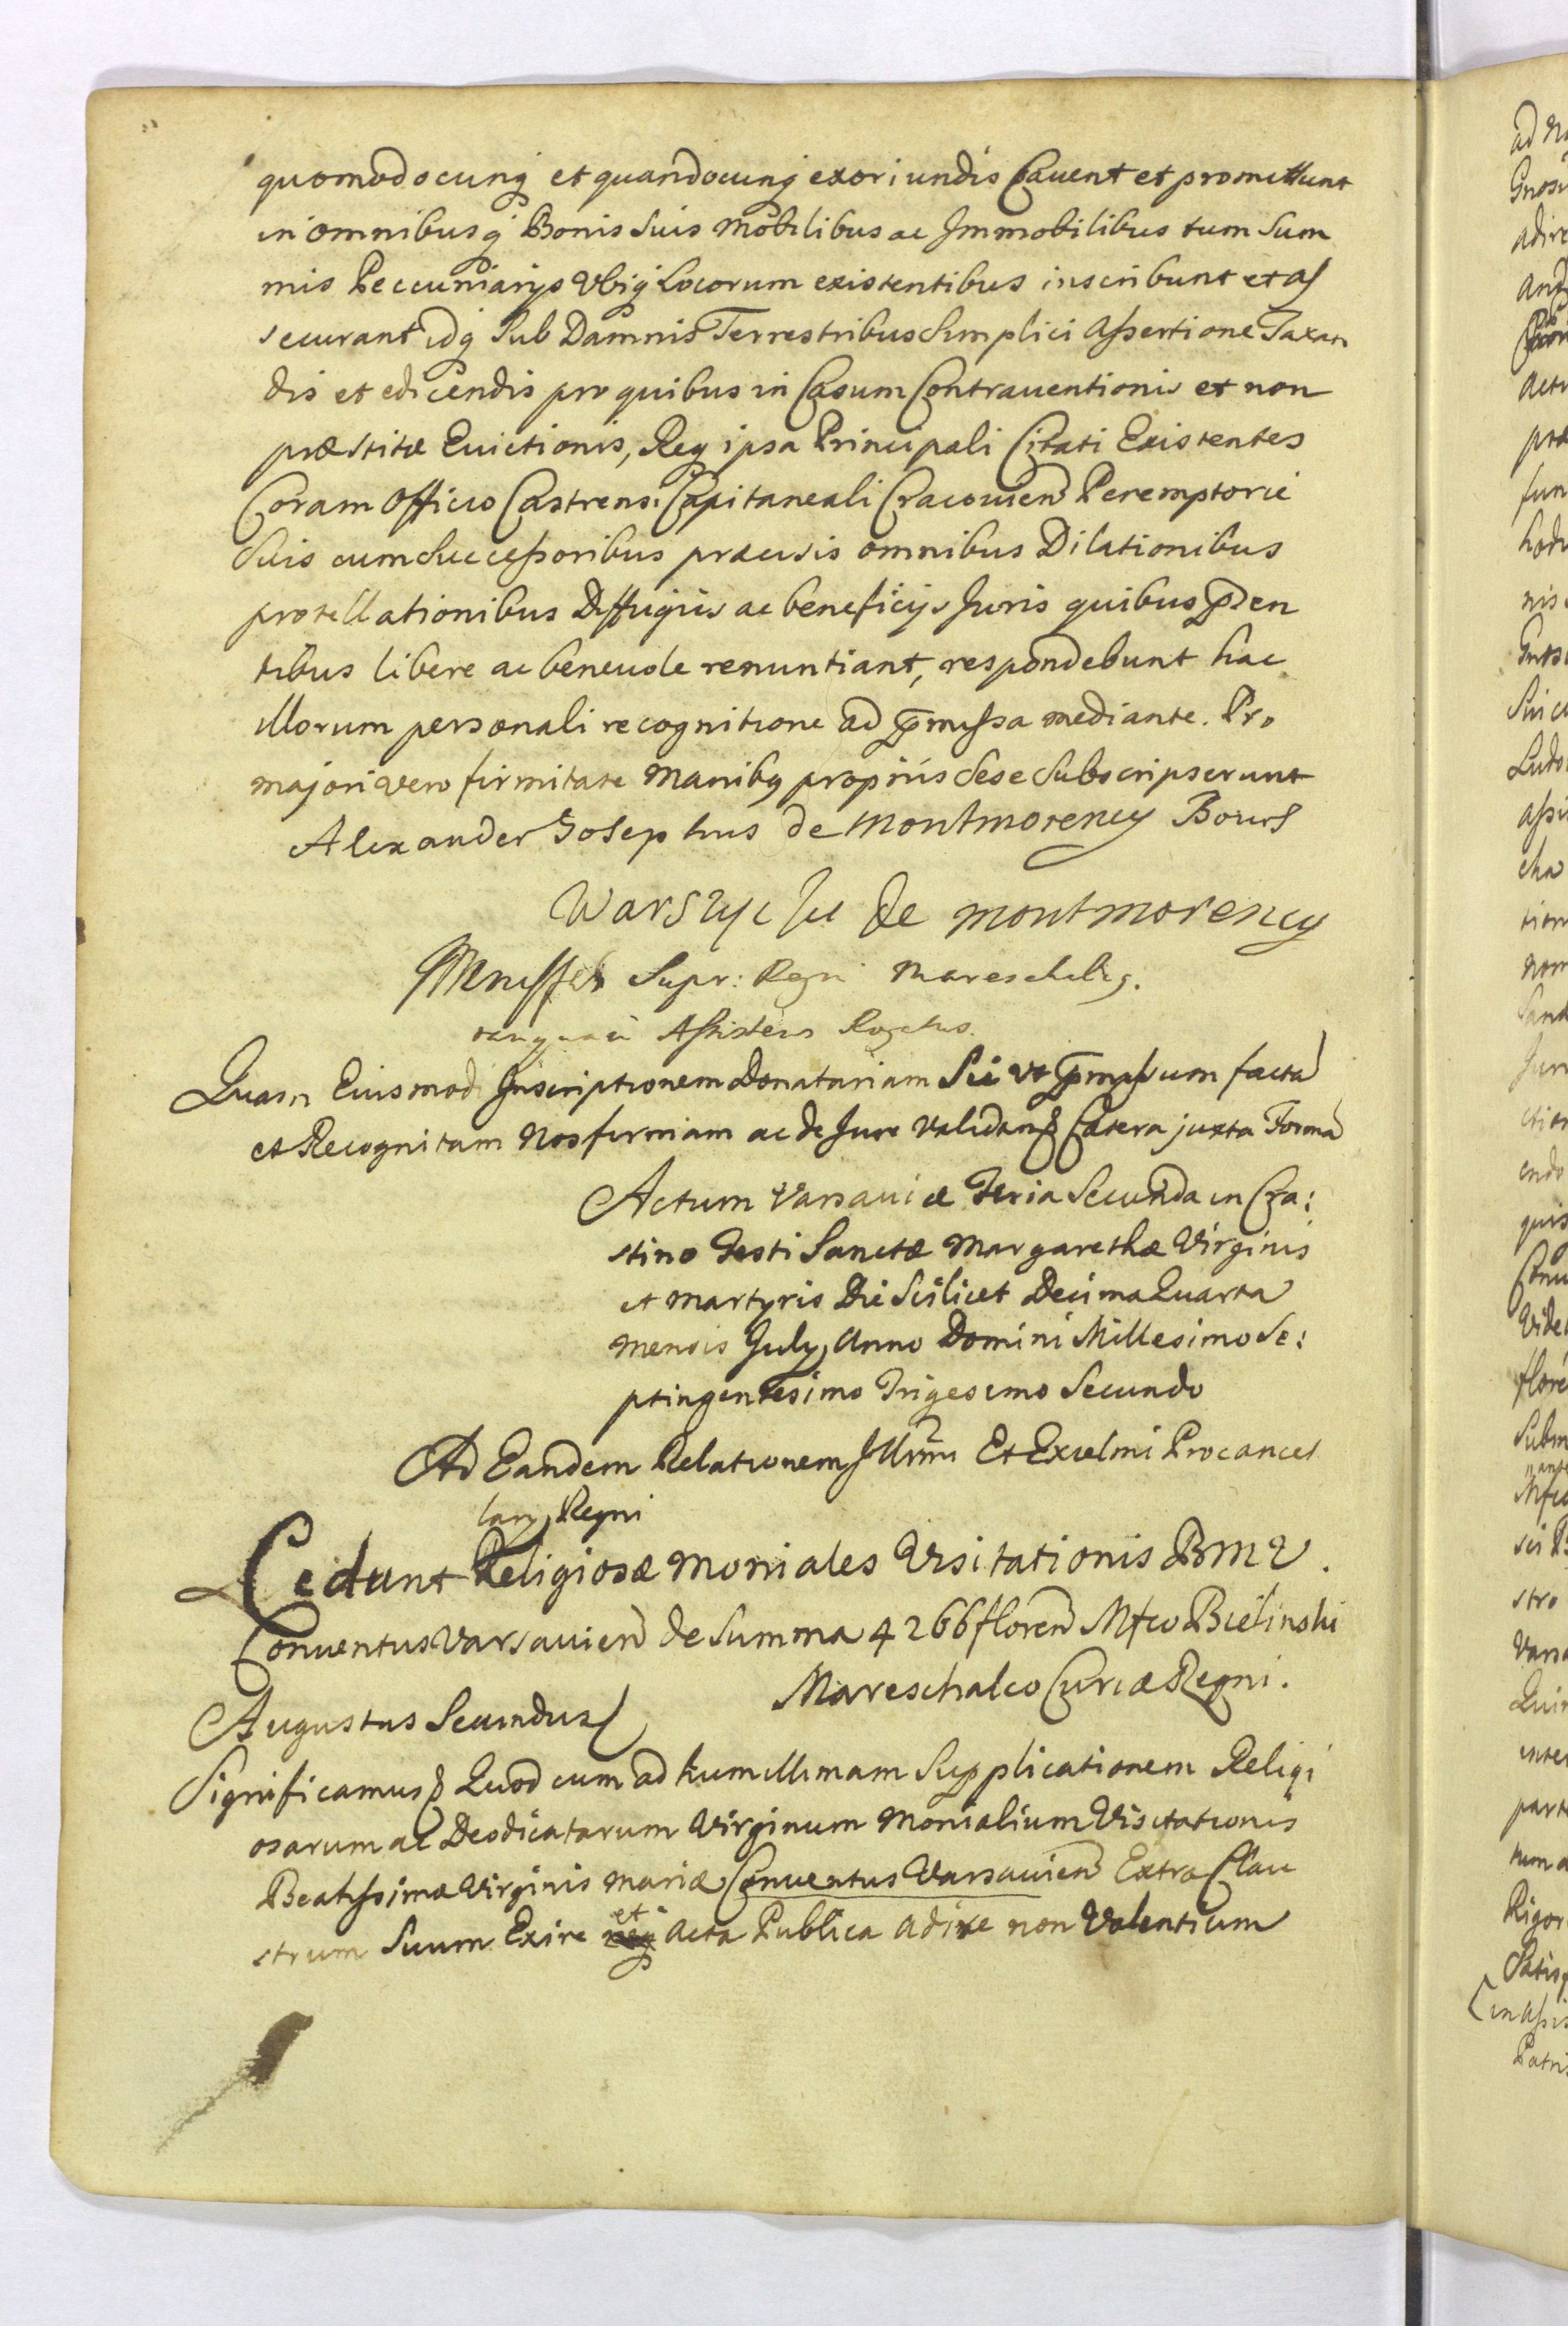 quomodocunq et quandocunq exoriundis Cavent et promittunt
in omnibusq Bonis Suis Mobilibus ac Immobilibus tum Sum
mis Peccuniarys Vbiq Locorum existentibus inscribunt et as
securant idq Sub Damnis Terrestribus Simplici Assertione Taxan
dis et edicendis pro quibus in Casum Contrauentionis et non
præstitæ Euictionis, Req ipsa Principali Citati Existentes
Coram Officio Castrensi Capitaneali Cracouien Peremptorie
Suis cum Successoribus præcisis omnibus Dilationibus
protellationibus Diffugiis ac beneficijs Juris quibus pden
tibus libere ac beneuole renuntiant, respondebunt hac
illorum personali recognitione ad pmissa mediante. Pro
majori vero firmitate Manibq propriis Sese Subscripserunt
Alexander Josephus de Montmorency Bours
Warszycka de montmorency
Supr: Regni Mareschalus.
tanquam Assistens Rogatus.
Quam Eiusmodi Inscriptionem Donatariam Sic vt pmissum facta
et Recognitam Nos firmam ac de Jure Validam & Cætera juxta Forma
Actum Varsauiæ Feria Secunda in Cra:
stino Festi Sanctæ Margarethæ Virginis
et Martyris Die Scilicet Decima Quarta
Mensis July, Anno Domini Millesimo Se:
ptingentesimo Trigesimo Secundo
Ad Eandem Relationem Illrmi Et Excelmi Procancel
lary Regni
Cedunt Religiosæ Moniales Visitationis BMV.
Conuentus Varsauien de Summa 4266 floren Mfco Bielinski
Mareschalco Curiæ Regni.
Augustus Secundus
Significamus & Quod cum ad humillimam Supplicationem Religi
osarum ac Deodicatarum Virginum Monialium Visitationis
Beatissimæ Virginis Mariæ Conuentus Varsauien Extra Clau
strum Suum Exire et Acta Publica Adire non Valentium